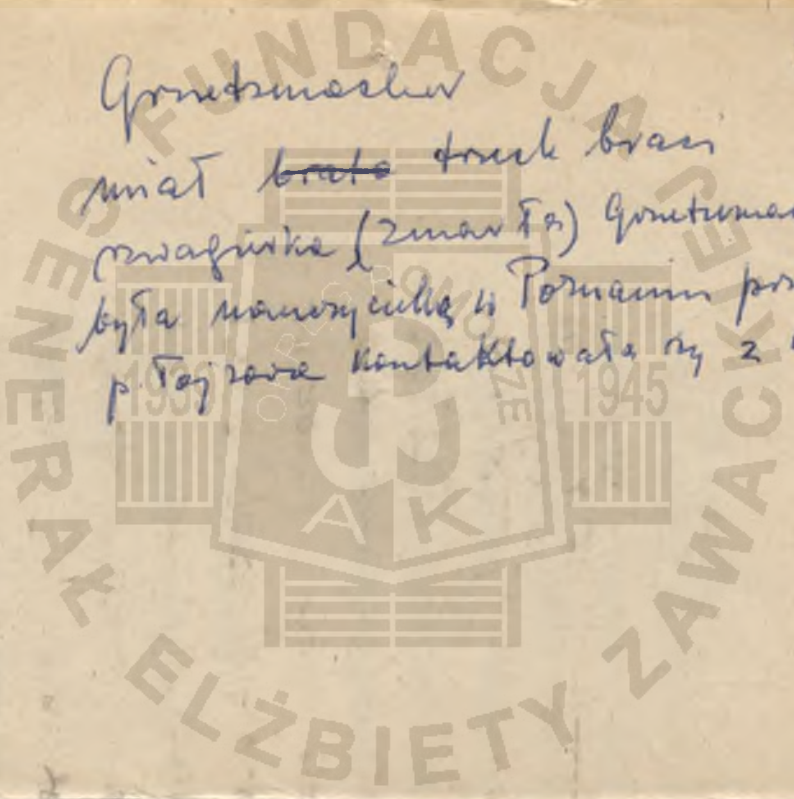 Gruetzmacher
miał brata trzech braci
szwagierka (zmarła) Gruetzmac
była nauczycielką w Poznaniu
p. kontaktowała się z
FUNDACJA
GENERAŁ ELŻBIETY ZAWACKIEJ
ORLE POMORZE
1939 1945
AK